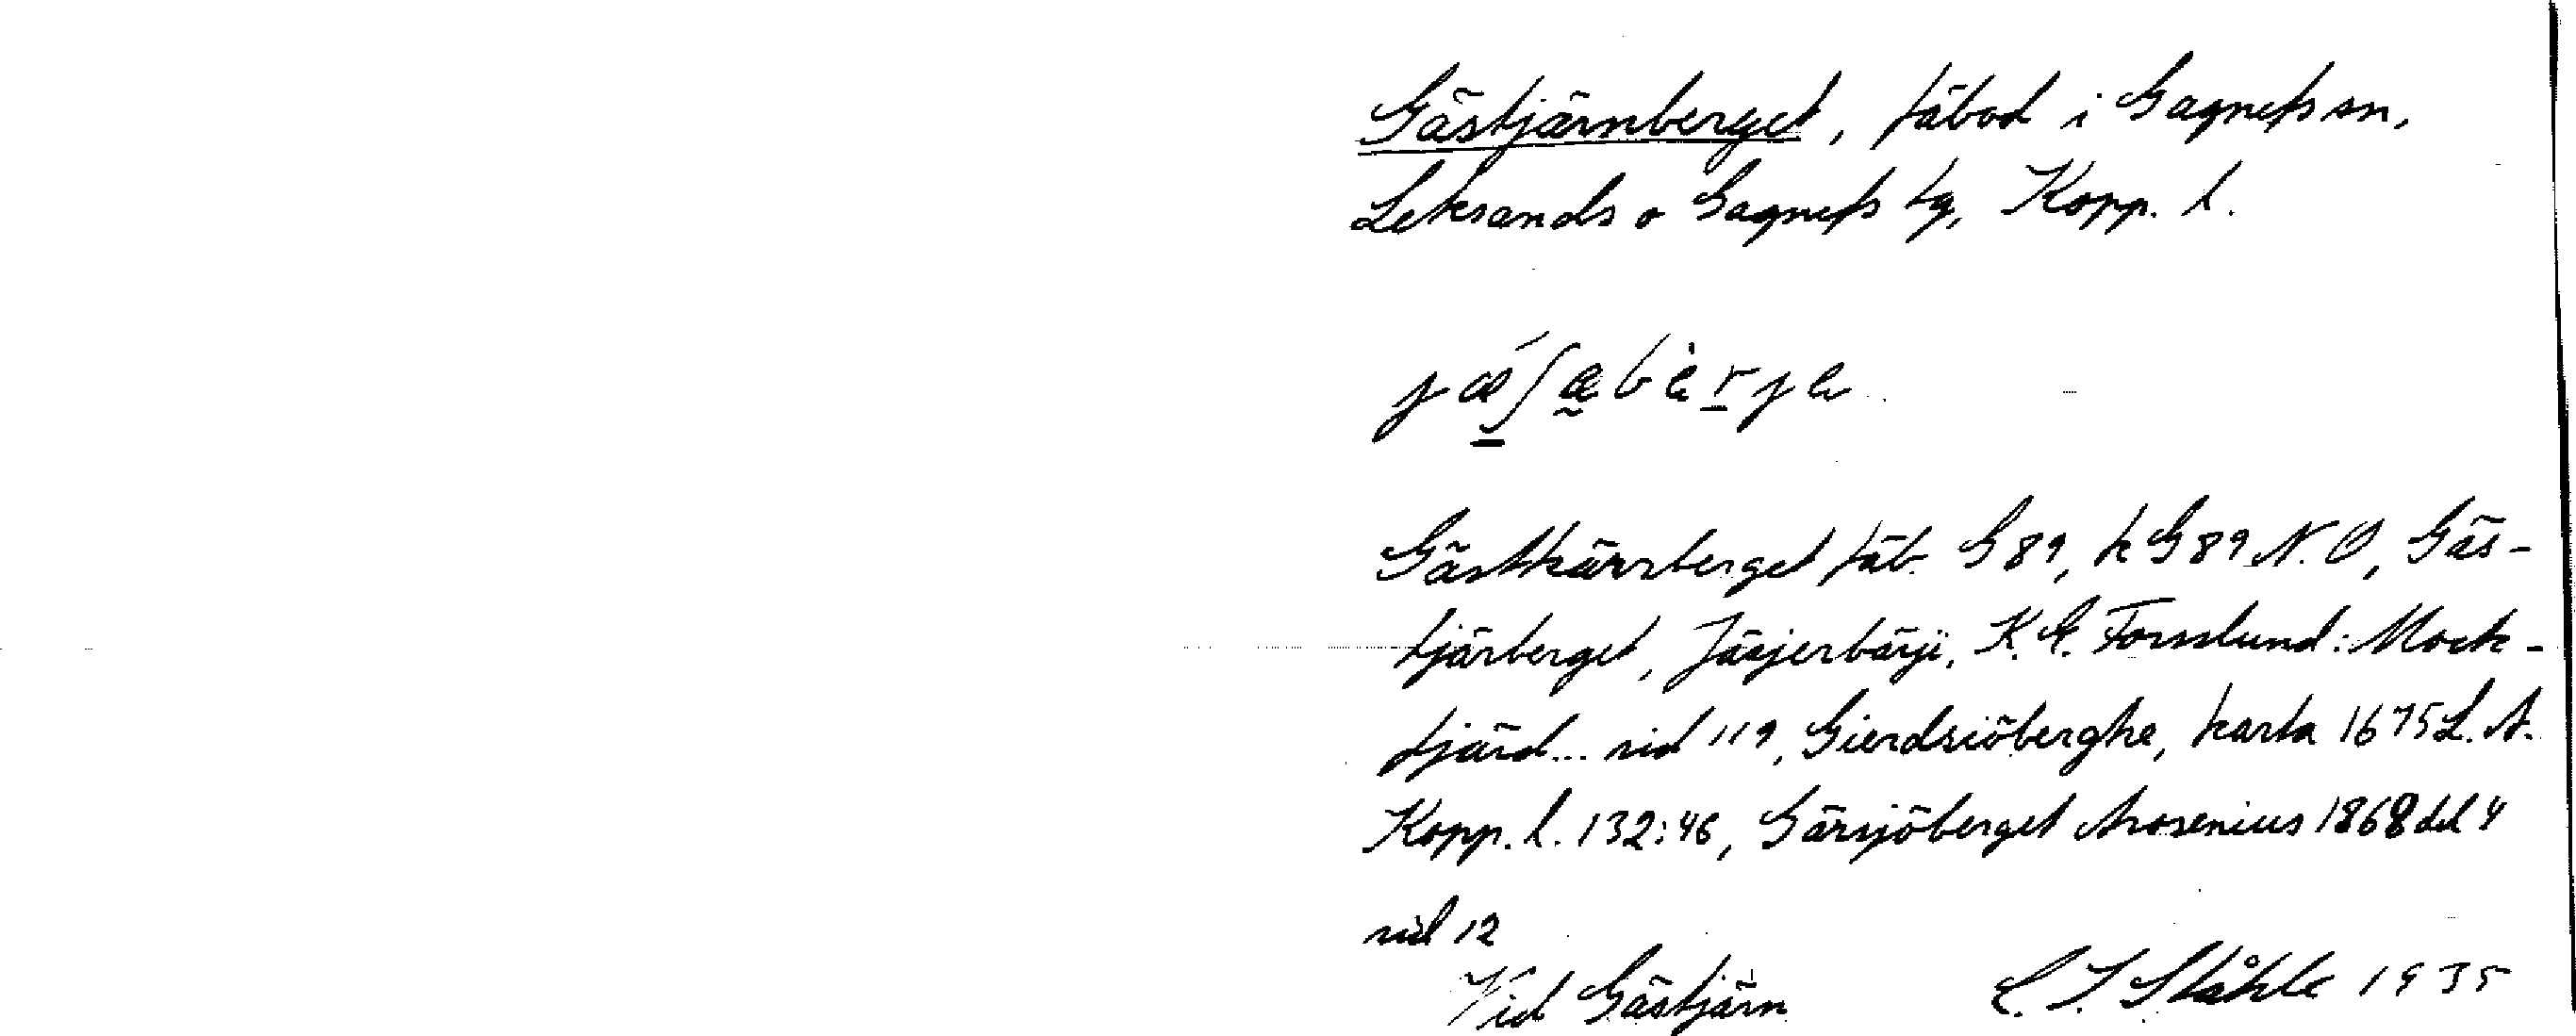 Gästjärnberget, fäbod i Gagnefs sn,
Leksands o Gagnefs tg, Kopp. l.
Gästkärrberget fäb. G 89, k G 89 N.O, Gäs-
tjärberget, Jäsjerbärji, K.E. Forsslund: Mock-
fjärd... sid 119, Gierdsiöberghe, karta 1675 L.A.
Kopp. l. 132:46, Gärsjöberget Arosenius 1868 del 4
sid 12
Vid Gästjärn C. I. Ståhle 1935